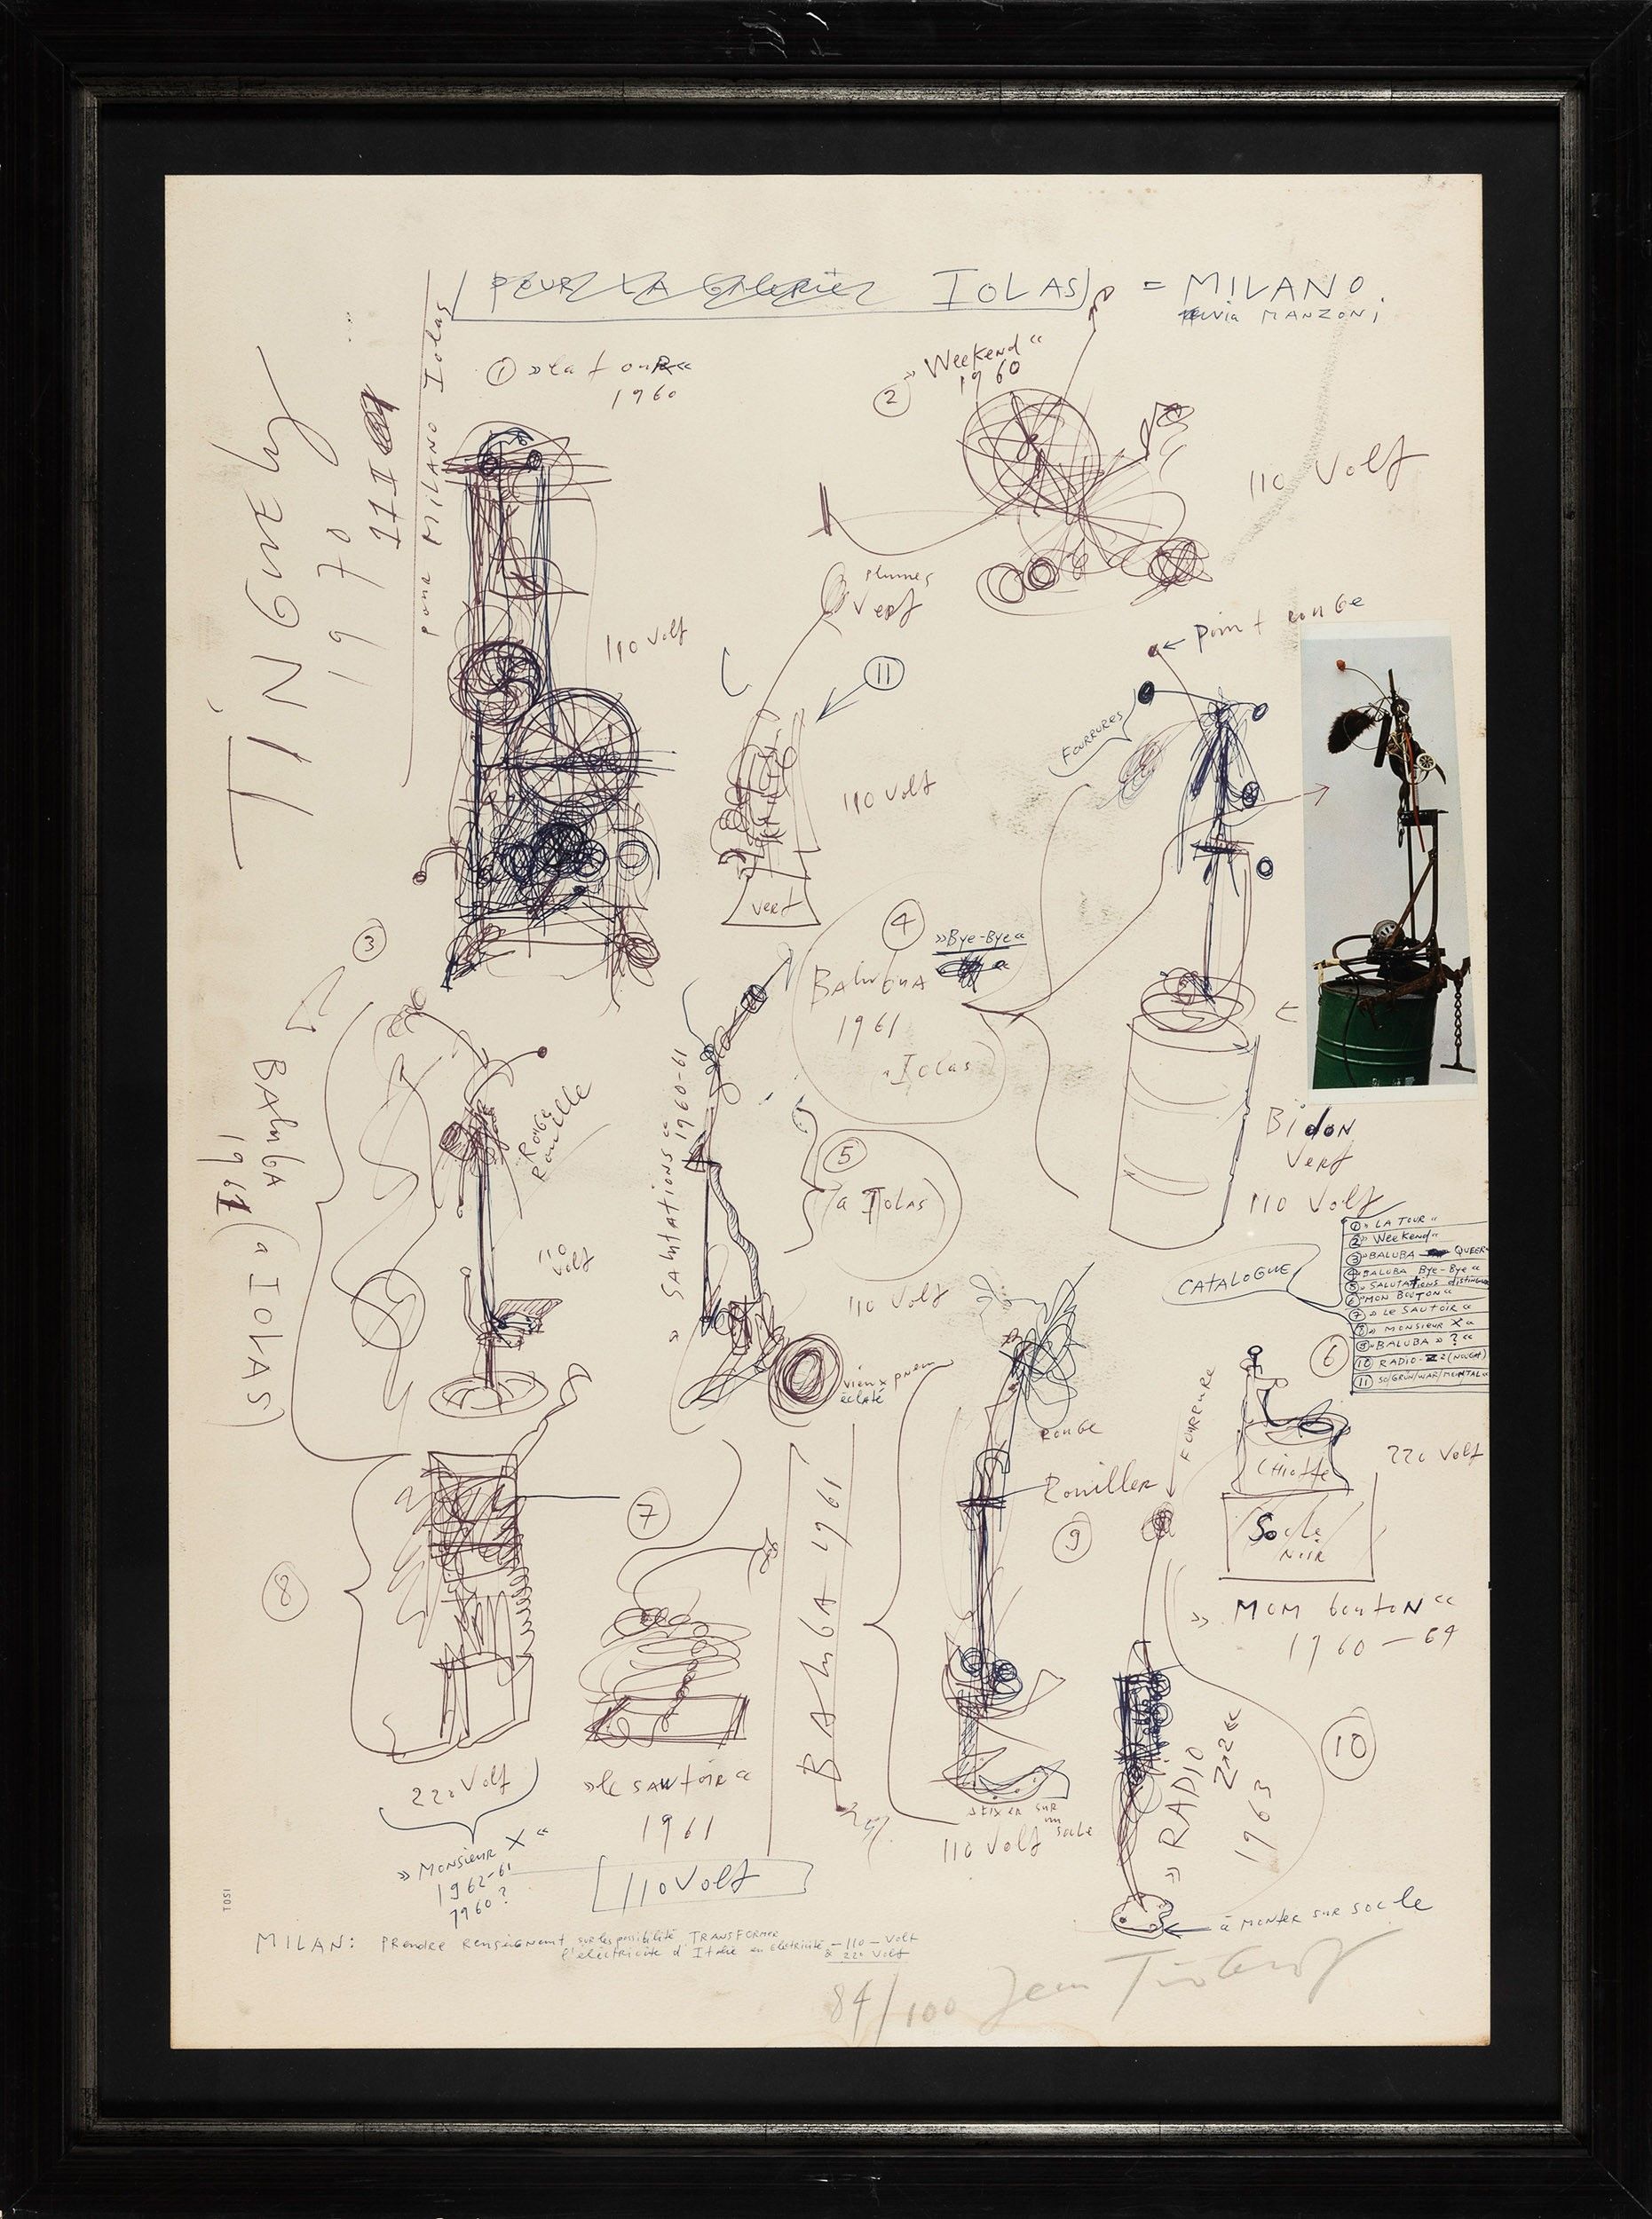 POUR LA GALERIE IOLAS = MILANO
via MANZONI
TiNGuELy
1970
III
pour MILANO Iolas
① »La touR«
1960
110 Volt
② »Weekend«
1960
110 Volt
plumes
vert
⑪
110 Volt
vert
← Point rouge
FOURRURES
④ »Bye-Bye«
BALubA
1961
Iolas
Bidon
Vert
110 Volt
③
BALubA
1961
(a IOLAS)
Rouge
Rouille
110
Volt
»SALutAtions«
1960-61
⑤
(a Iolas)
110 Volt
vieux pneu
éclaté
CATALOGUE
① »LA TOUR«
② »Weekend«
③ »BALUBA QUEER
④ »BALUBA Bye-Bye«
⑤ »SALUTAtiONS distingu
⑥ »MON BOUTON«
⑦ »Le SAUtoir«
⑧ »MONSIEUR X«
⑨ »BALUBA »?«
⑩ RADIO-
⑪
⑥
220 Volt
Socle
NOIR
»MOM bouton«
1960 — 64
FOURRURE
rouge
Rouiller
⑨
BALubA 1961
110 Volt
a fixer sur
un
socle
⑦
»le sautoir«
1961
110 Volt
⑧
220 Volt
»MONSIEUR X«
1962-61
1960?
»RADIO
1963
⑩
← à MONTER SUR SOCLE
TOSI
MILAN: PRENDRE RENSEIGNEMENT sur les possibilité TRANSFORMER
l'éléctricité d'Italie en eletricité – 110 – Volt
& 220 Volt
84/100 Jean Tinguely